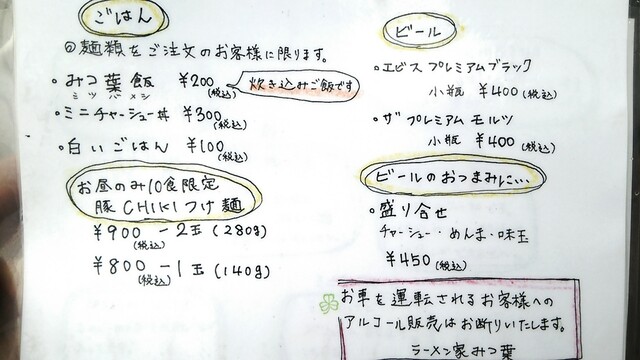 ごはん
◎麺類をご注文のお客様に限ります。
・みつ葉飯 ¥200(税込)
ミツバメシ
炊き込みご飯です
・ミニチャーシュー丼 ¥300
(税込)
・白いごはん ¥100
(税込)
お昼のみ10食限定
豚CHIKIつけ麺
¥900 - 2玉(280g)
(税込)
¥800 - 1玉(140g)
(税込)
ビール
・エビスプレミアムブラック
小瓶 ¥400(税込)
・ザプレミアムモルツ
小瓶 ¥400
(税込)
ビールのおつまみに…
・盛り合せ
チャーシュー・めんま・味玉
¥450(税込)
お車を運転されるお客様への
アルコール販売はお断りいたします。
ラーメン家みつ葉